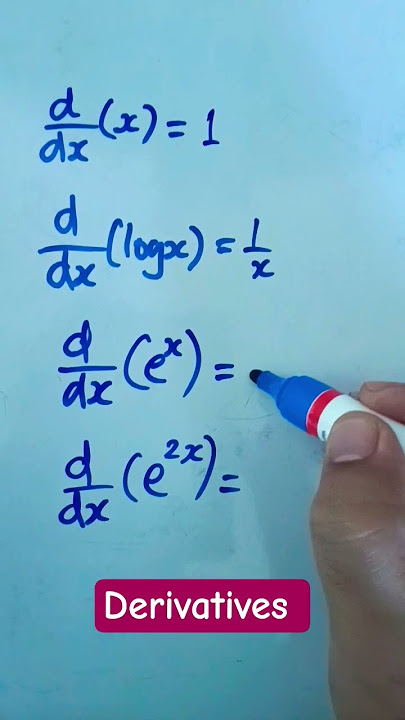 d/dx (x) = 1
d/dx (logx) = 1/x
d/dx (e^x) =
d/dx (e^2x) =
Derivatives